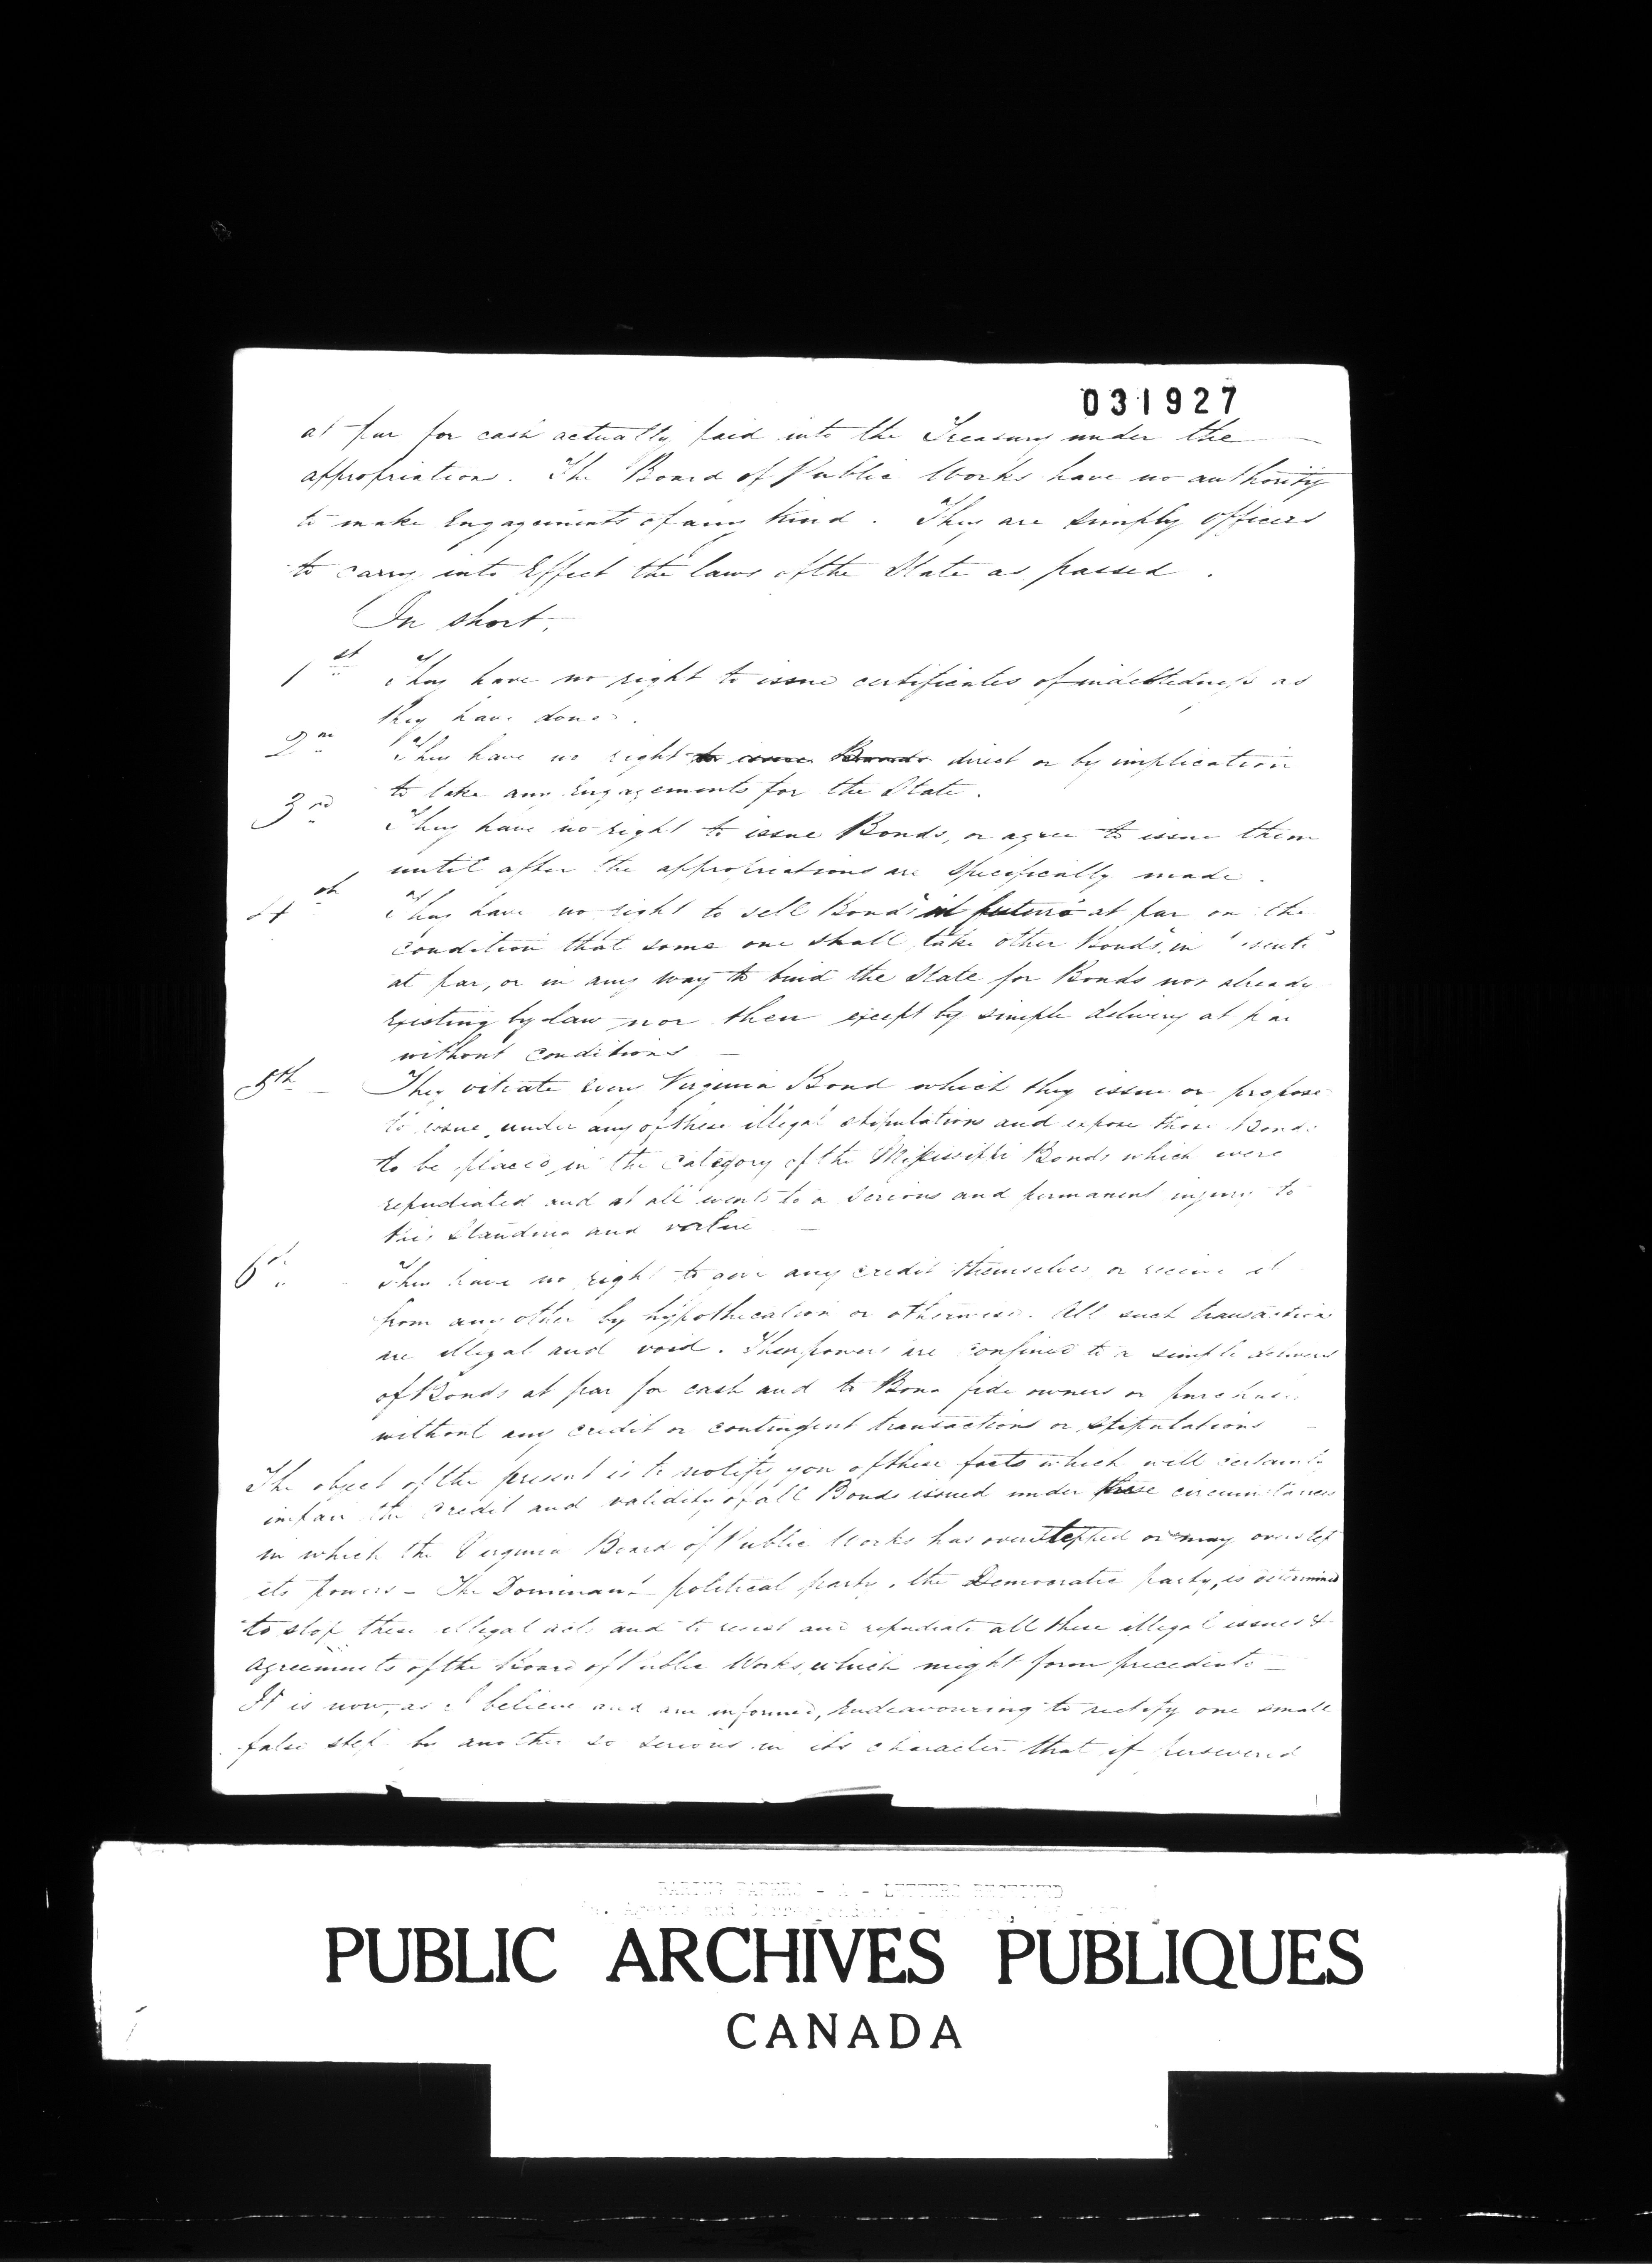 031927
at par for cash actually paid into the Treasury under the
appropriations. The Board of Public Works have no authority
to make Engagements of any kind. They are simply officers
to carry into Effect the laws of the State as passed.
In short,
1st They have no right to issue certificates of indebtedness as
they have done.
2nd They have no right to issue Bonds direct or by implication
to take any Engagements for the State.
3rd They have no right to issue Bonds, or agree to issue them
until after the appropriations are specifically made.
4th They have no right to sell Bonds "in futuro" at par on the
condition that some one shall take other Bonds, in
at par, or in any way to bind the State for Bonds not already
Existing by law nor then except by simple delivery at par
without conditions —
5th — They vitiate every Virginia Bond which they issue or propose
to issue under any of these illegal stipulations and expose those Bonds
to be placed in the category of the Mississippi Bonds which were
repudiated and at all events to a serious and permanent injury to
their standing and value —
6th They have no right to give any credit themselves or receive it
from any other by hypothecation or otherwise. All such transactions
are illegal and void. Their powers are confined to a simple delivery
of Bonds at par for cash and to Bona fide owners or purchasers
without any credit or contingent transactions or stipulations —
The object of the present is to notify you of these facts which will certainly
impair the credit and validity of all Bonds issued under these circumstances
in which the Virginia Board of Public Works has overstepped or may overstep
its powers — The Dominant political party, the Democratic party, is determined
to stop these illegal acts and to resist and repudiate all these illegal issues &
agreements of the Board of Public Works which might form precedents —
It is now, as I believe and am informed, Endeavouring to rectify one small
false step by another so serious in its character that if persevered
BARING PAPERS - A - LETTERS RECEIVED
PUBLIC ARCHIVES PUBLIQUES
CANADA